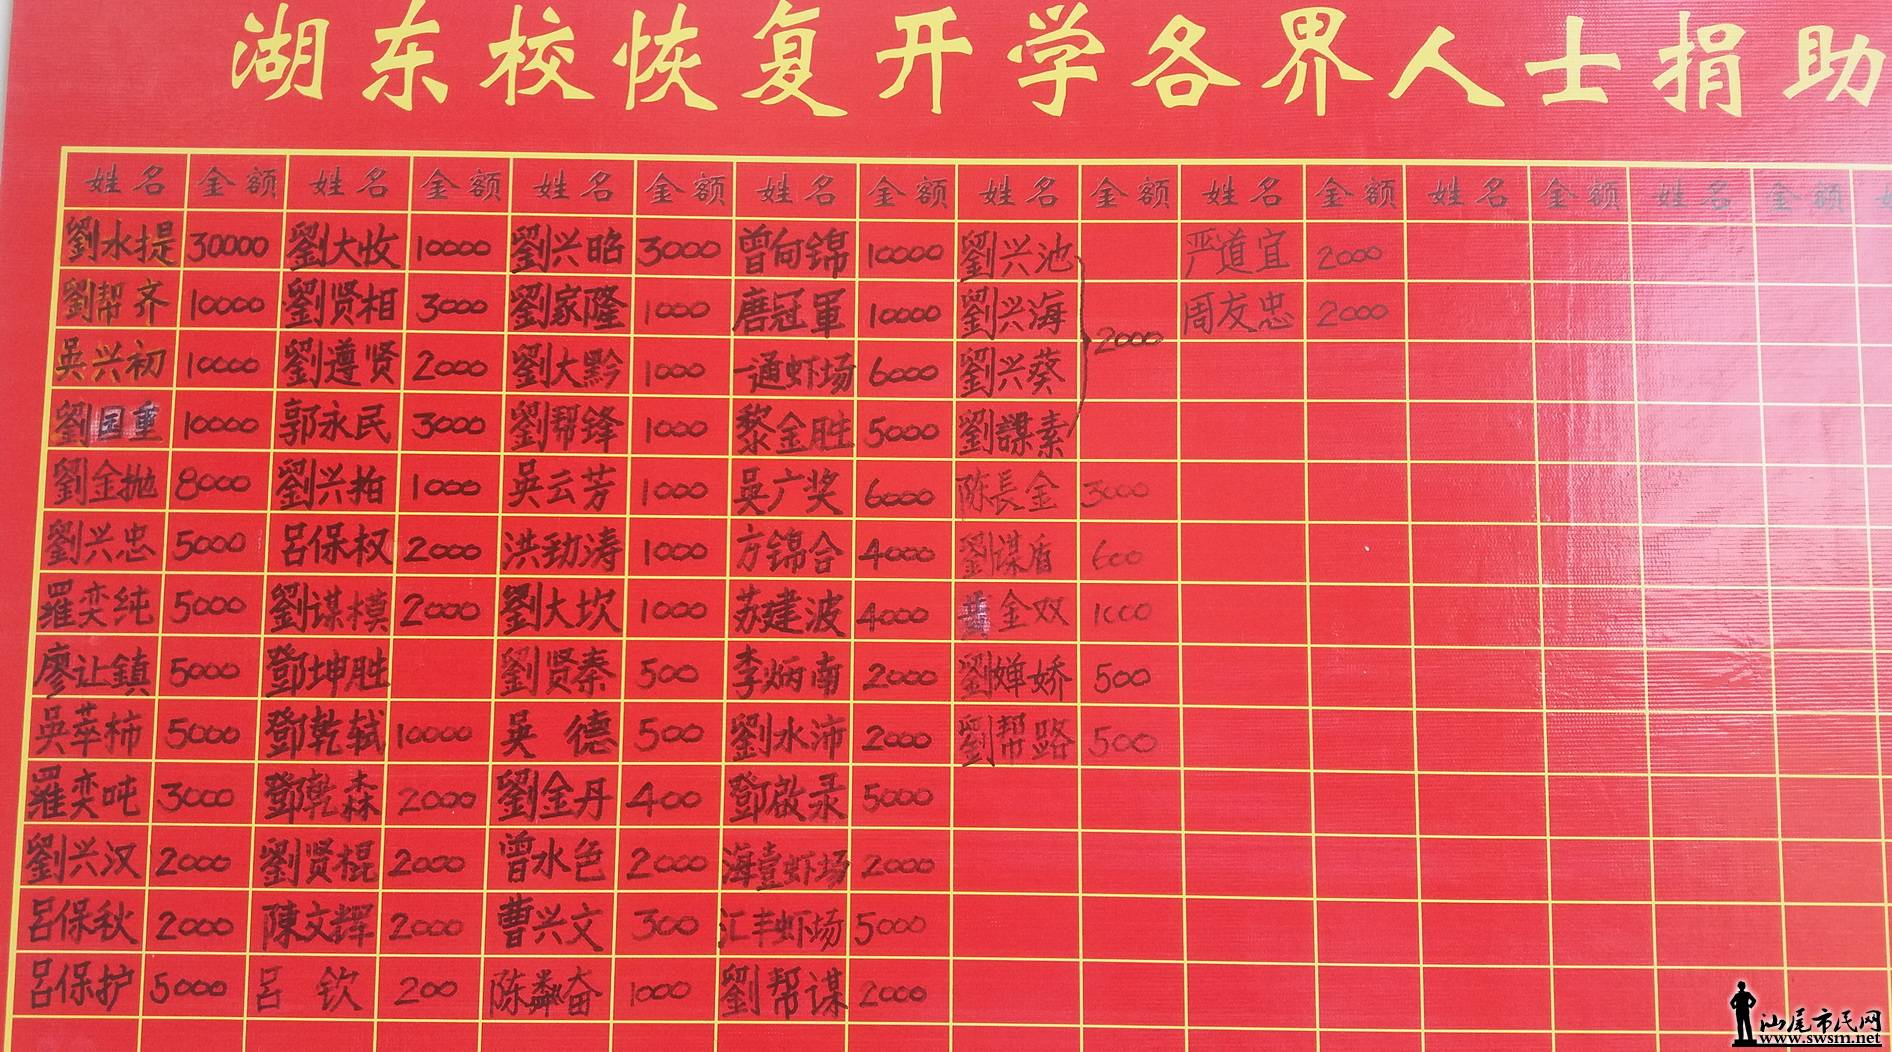 湖东校恢复开学各界人士捐助
姓名 金额 姓名 金额 姓名 金额 姓名 金额 姓名 金额 姓名 金额 姓名 金额 姓名 金额
劉水提 30000 劉大收 10000 劉兴昭 3000 曾向锦 10000 劉兴池 严道宜 2000
劉帮齐 10000 劉贤相 3000 劉家隆 1000 唐冠軍 10000 劉兴海 2000 周友忠 2000
吳兴初 10000 劉遵贤 2000 劉大黔 1000 一通虾场 6000 劉兴葵
劉国重 10000 郭永民 3000 劉帮锋 1000 黎金胜 5000 劉謀素
劉金抛 8000 劉兴柏 1000 吳云芳 1000 吳广奖 6000 陈長金 3000
劉兴忠 5000 呂保权 2000 洪劲涛 1000 方锦合 4000 劉谋盾 600
羅奕纯 5000 劉谋模 2000 劉大坎 1000 苏建波 4000 黄金双 1000
廖让鎮 5000 鄧坤胜 劉贤秦 500 李炳南 2000 劉婵娇 500
吳萃柿 5000 鄧乾轼 10000 吳德 500 劉水沛 2000 劉帮路 500
羅奕吨 3000 鄧乾森 2000 劉金丹 400 鄧啟录 5000
劉兴汉 2000 劉贤棍 2000 曾水色 2000 海壹虾场 2000
呂保秋 2000 陳文辉 2000 曹兴文 300 汇丰虾场 5000
呂保护 5000 呂钦 200 陈 1000 劉帮谋 2000
汕尾市民网
www.swsm.net